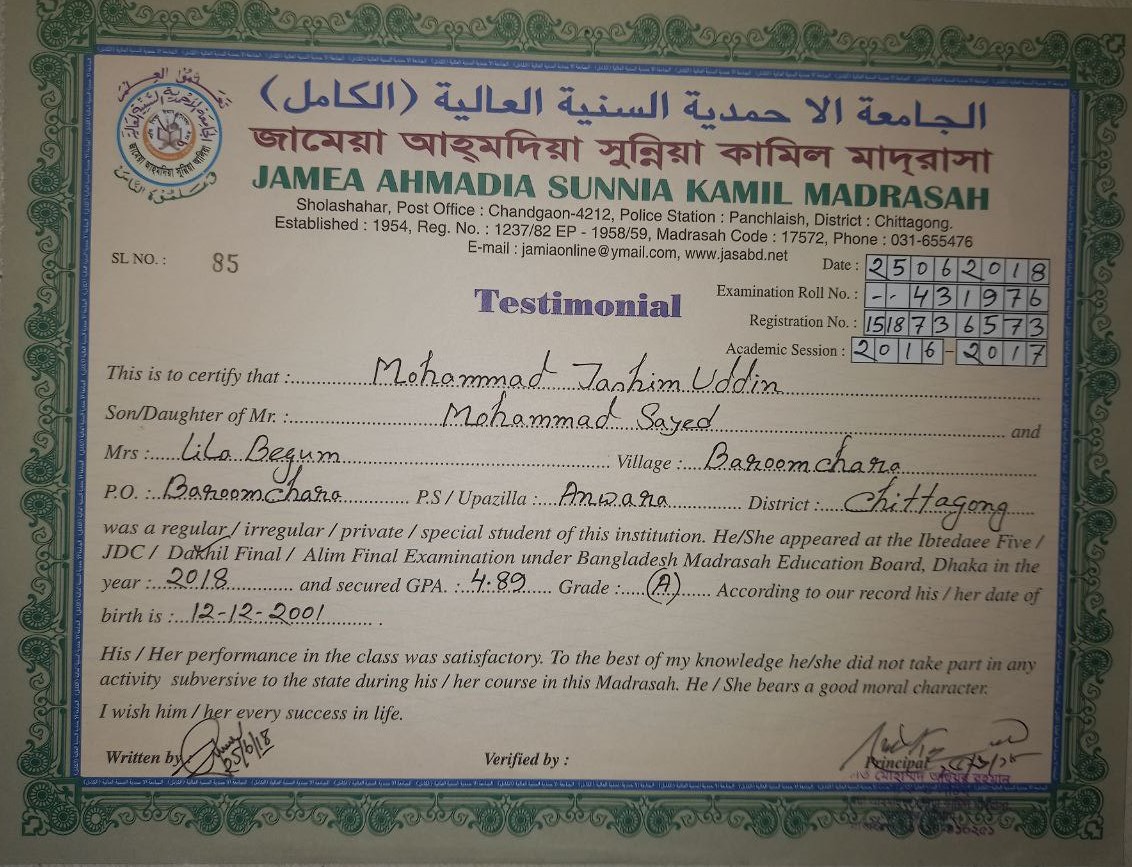 الجامعة الاحمدية السنية العالية (الكامل)
জামেয়া আহ্‌মদিয়া সুন্নিয়া কামিল মাদ্‌রাসা
JAMEA AHMADIA SUNNIA KAMIL MADRASAH
Sholashahar, Post Office : Chandgaon-4212, Police Station : Panchlaish, District : Chittagong.
Established : 1954, Reg. No. : 1237/82 EP - 1958/59, Madrasah Code : 17572, Phone : 031-655476
E-mail : jamiaonline@ymail.com, www.jasabd.net
SL NO. : 85
Date : 25062018
Testimonial
Examination Roll No. : -- 431976
Registration No. : 1518736573
Academic Session : 2016-2017
This is to certify that : Mohammad Jashim Uddin
Son/Daughter of Mr. : Mohammad Sayed and
Mrs : Lila Begum Village : Baroomchara
P.O. : Baroomchara P.S / Upazilla : Anwara District : Chittagong
was a regular / irregular / private / special student of this institution. He/She appeared at the Ibtedaee Five /
JDC / Dakhil Final / Alim Final Examination under Bangladesh Madrasah Education Board, Dhaka in the
year : 2018 and secured GPA. : 4.89 Grade : (A) According to our record his / her date of
birth is : 12-12-2001 .
His / Her performance in the class was satisfactory. To the best of my knowledge he/she did not take part in any
activity subversive to the state during his / her course in this Madrasah. He / She bears a good moral character.
I wish him / her every success in life.
Written by : 25/6/18
Verified by :
Principal